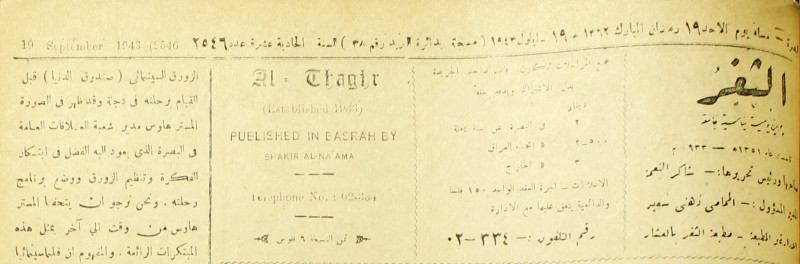 البصرة — مساء يوم الاحد ١٩ رمضان المبارك ١٣٦٢ هـ ١٩ – ايلول ١٩٤٣ ( مسجلة بدائرة البريد رقم ٣٨ ) السنة الحادية عشرة عدد ٢٥٤٦
19 September 1943 (2546
الثغر
جريدة يومية سياسية عامة
١٣٥١ هـ — ٩٣٣ م
صاحبها ورئيس تحريرها :— شاكر النعمة
المدير المسؤول :— المحامي
المطبعة — مطبعة الثغر بالعشار
المراسلات تكون باسم صاحب الجريدة
بدل الاشتراك ويدفع سلفاً
دينار
٢ في البصرة عن سنة كاملة
٢٫٥٠٠ « انحاء العراق
٣ « الخارج
الاعلانات — اجرة العقد الواحد ١٥٠ فلسا
والدائمية يتفق عليها مع الادارة
رقم التلفون :— ٣٣٤-٠٢
Al - Thagir
(Established 1933)
PUBLISHED IN BASRAH BY
SHAKIR AL-NA'AMA
Telephone No. : 02-334
ثمن النسخة ٦ فلوس
الزورق السينمائي ( صندوق الدنيا ) قبل
القيام برحلته في دجلة وقد ظهر في الصورة
المستر هاوس مدير شعبة العلاقات العامة
في البصرة الذي يعود اليه الفضل في ابتكار
الفكرة وتنظيم الزورق ووضع برنامج
رحلته . ونحن نرجو ان يتحفنا المستر
هاوس من وقت الى آخر بمثل هذه
المبتكرات الرائعة . والمفهوم ان فلما سينمائيا